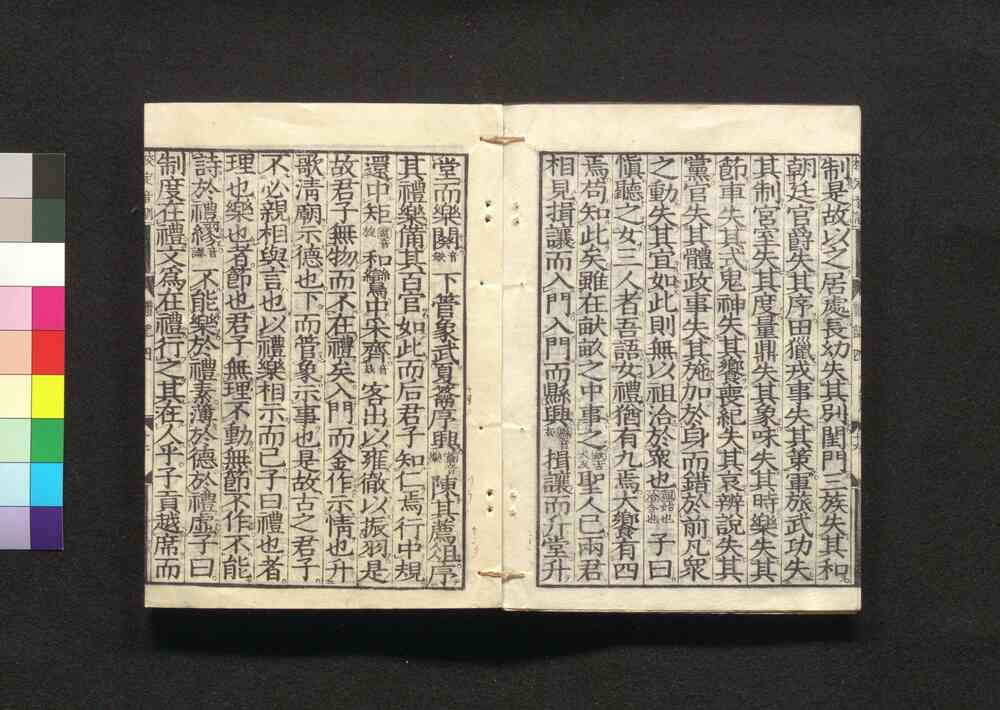 制是故以之居處長幼失其別閨門三族失其和
朝廷官爵失其序田獵戎事失其策軍旅武功失
其制宮室失其度量鼎失其象味失其時樂失其
節車失其式鬼神失其饗喪紀失其哀辨說失其
黨官失其體政事失其施加於身而錯於前凡眾
之動失其宜如此則無以祖洽於眾也 子曰
愼聽之女三人者吾語女禮猶有九焉大饗有四
焉苟知此矣雖在畎畝之中事之 聖人已兩君
相見揖讓而入門入門而縣興 揖讓而升堂升
堂而樂闋 下管象武夏籥序興 陳其薦俎序
其禮樂備其百官如此而后君子知仁焉行中規
還中矩 和鸞中采齊 客出以雍徹以振羽是
故君子無物而不在禮矣入門而金作示情也升
歌淸廟示德也下而管象示事也是故古之君子
不必親相與言也以禮樂相示而已子曰禮也者
理也樂也者節也君子無理不動無節不作不能
詩於禮繆 不能樂於禮素薄於德於禮虛子曰
制度在禮文爲在禮行之其在人乎子貢越席而